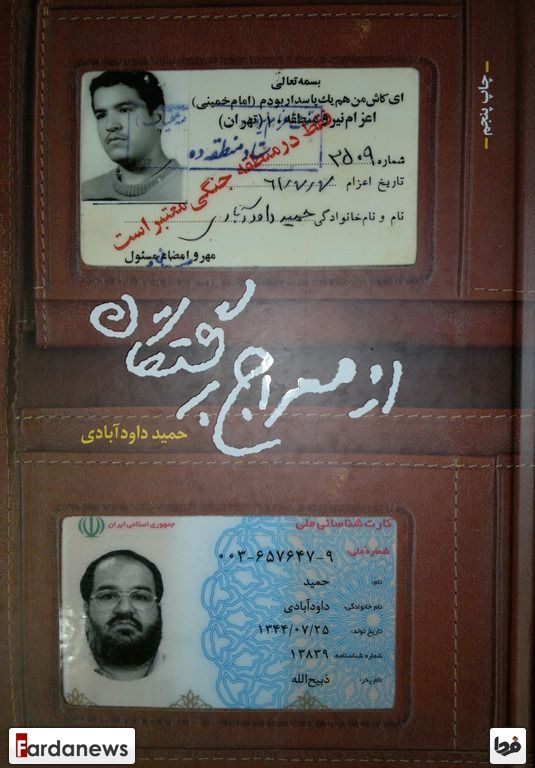 چاپ پنجم
بسمه تعالی
ای کاش من هم یك پاسدار بودم (امام خمینی)
اعزام نیرو منطقه ۱۰ (تهران)
ستاد منطقه ده
شماره ۳۵۰۹
تاریخ اعزام
فقط در منطقه جنگی معتبر است
نام و نام خانوادگی حمید داودآبادی
مهر و امضاء مسئول
از معراج برگشتگان
حمید داودآبادی
کارت شناسائی ملی
جمهوری اسلامی ایران
شماره ملی: ۰۰۳-۶۵۷۶۴۷-۹
نام: حمید
نام خانوادگی: داودآبادی
تاریخ تولد: ۱۳۴۴/۰۷/۲۵
شماره شناسنامه: ۱۳۸۳۹
نام پدر: ذبیح‌الله
Fardanews
فردا